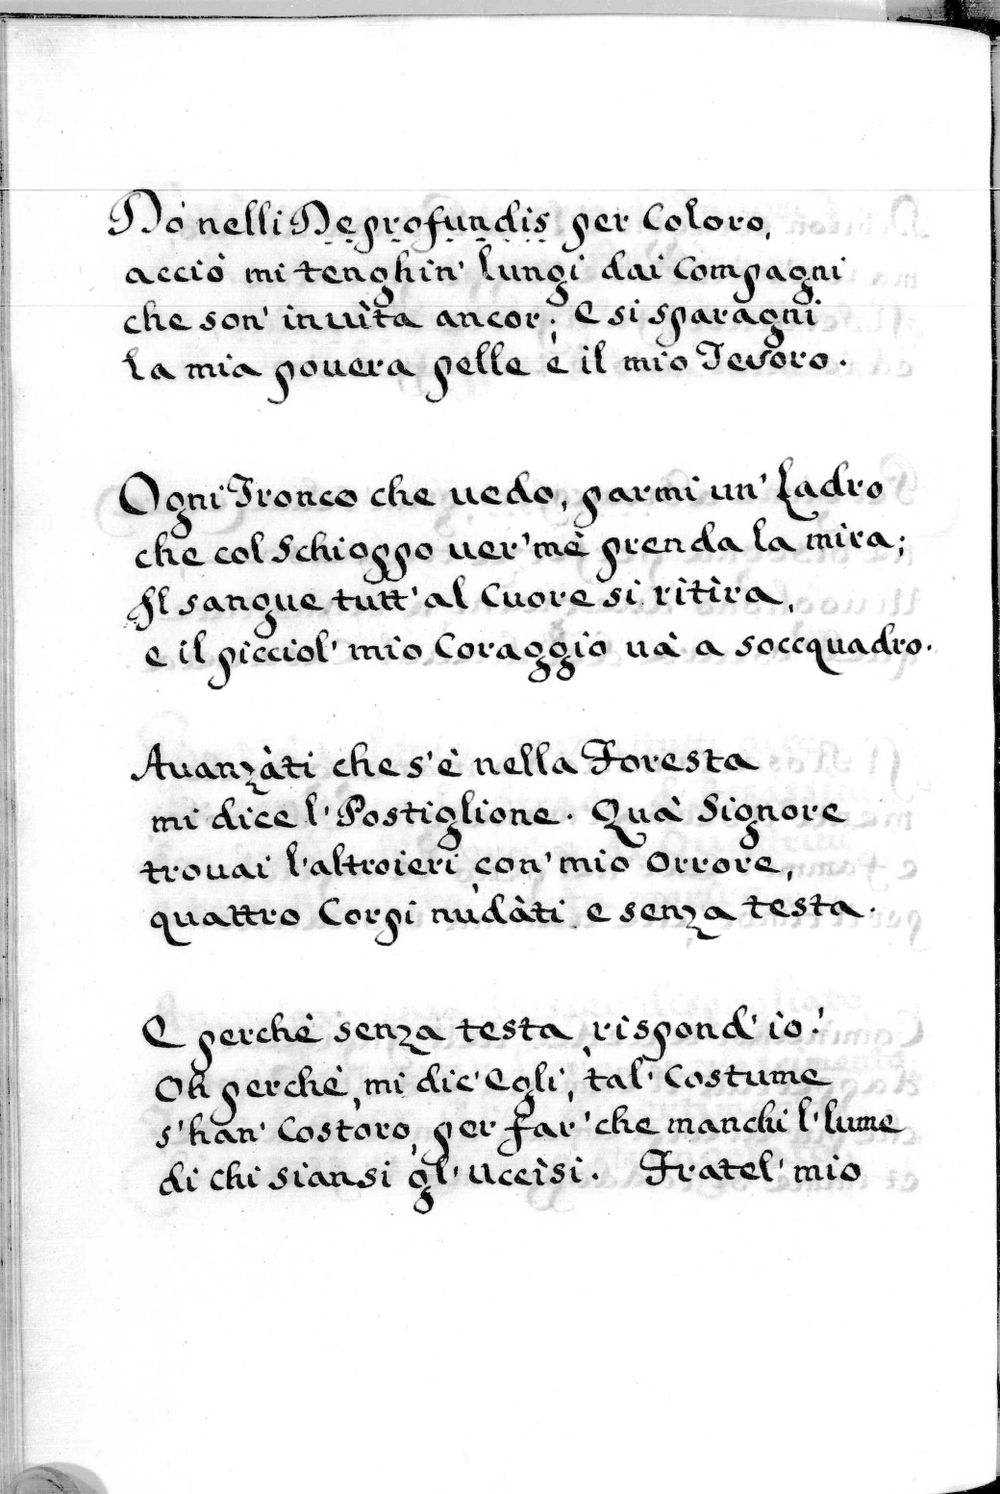 Dò nelli De profundis per Coloro,
acciò mi tenghin' lungi dai Compagni
che son' in uita ancor; e si sparagni
la mia pouera pelle è il mio Tesoro.
Ogni Tronco che uedo, parmi un' Ladro
che col Schioppo uer' mè prenda la mira;
Il sangue tutt' al Cuore si ritira,
e il picciol' mio Coraggio uà a soccquadro.
Auanzàti che s'è nella Foresta
mi dice l' Postiglione. Quà Signore
trouai l'altroieri, con' mio Orrore,
quattro Corpi nudàti, e senza testa.
E perchè senza testa, rispond' io?
Oh perchè, mi dic' Egli, tal' Costume
s'han' Costoro, per far' che manchi l' lume
di chi siansi gl' Uccìsi. Fratel' mio